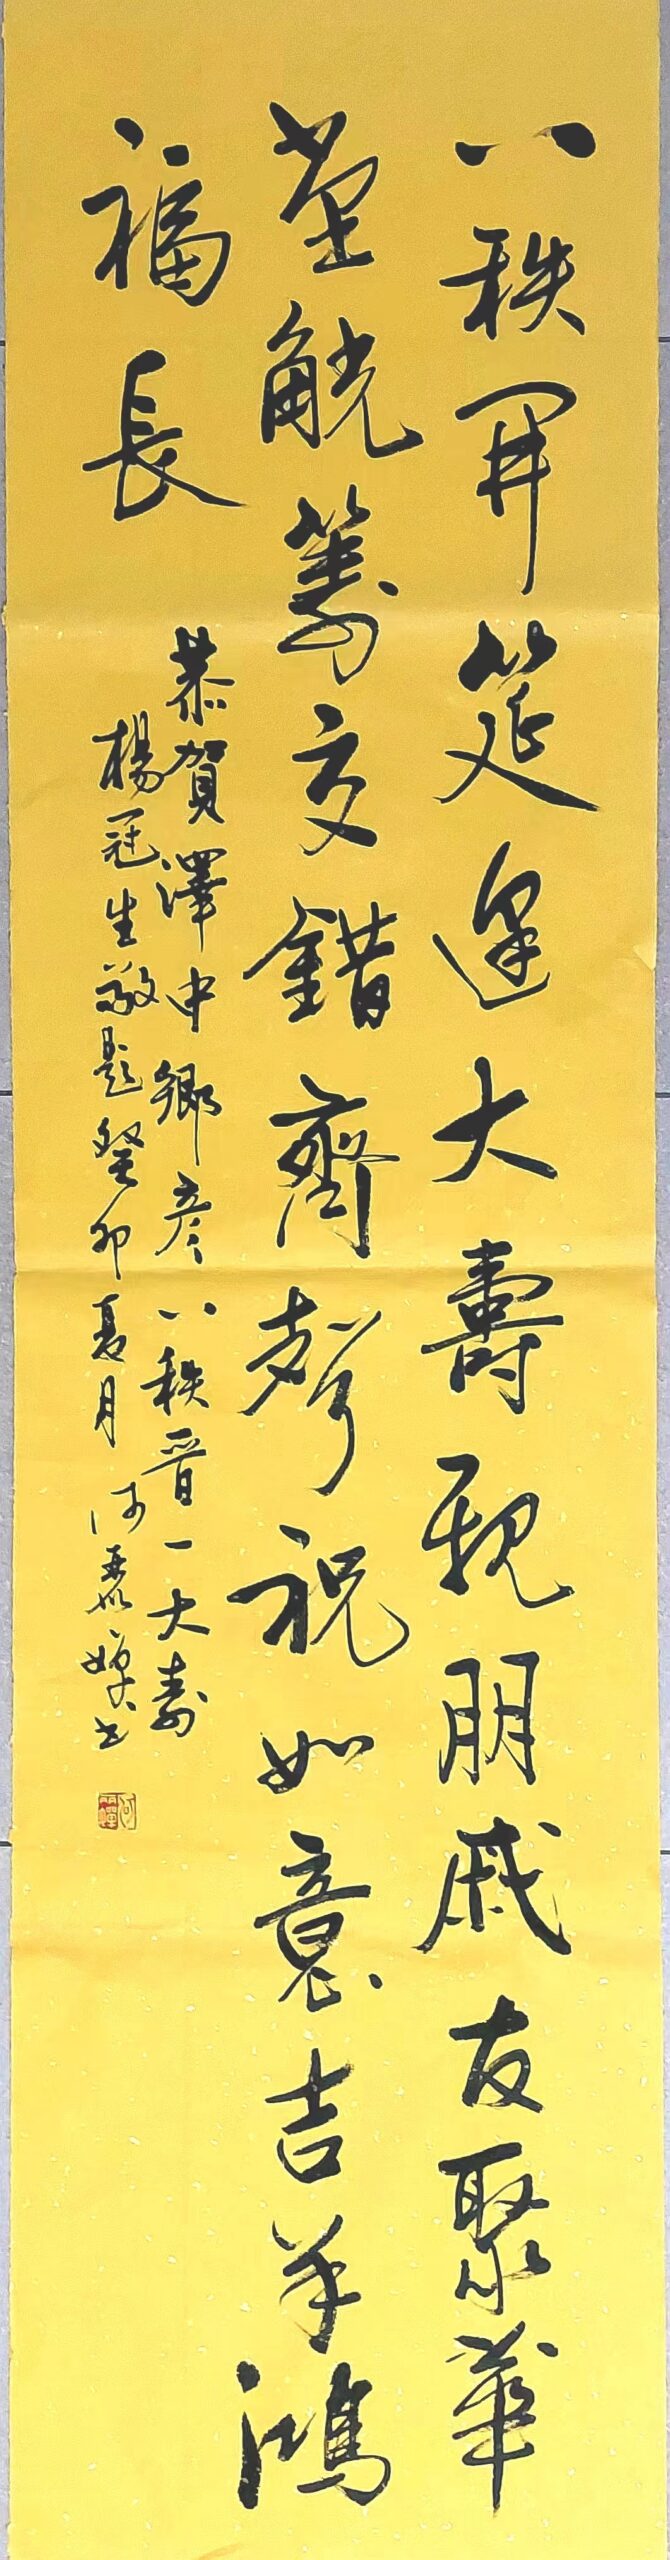 八秩開筵逢大壽親朋戚友聚華
堂觥籌交錯齊聲祝如意吉羊鴻
福長
恭賀澤中鄉彥八秩晉一大壽
楊冠生敬題癸卯夏月 何麗嬋書